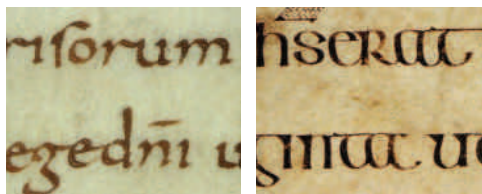 riſorum
egedn̄i u
hserat
ginta ue